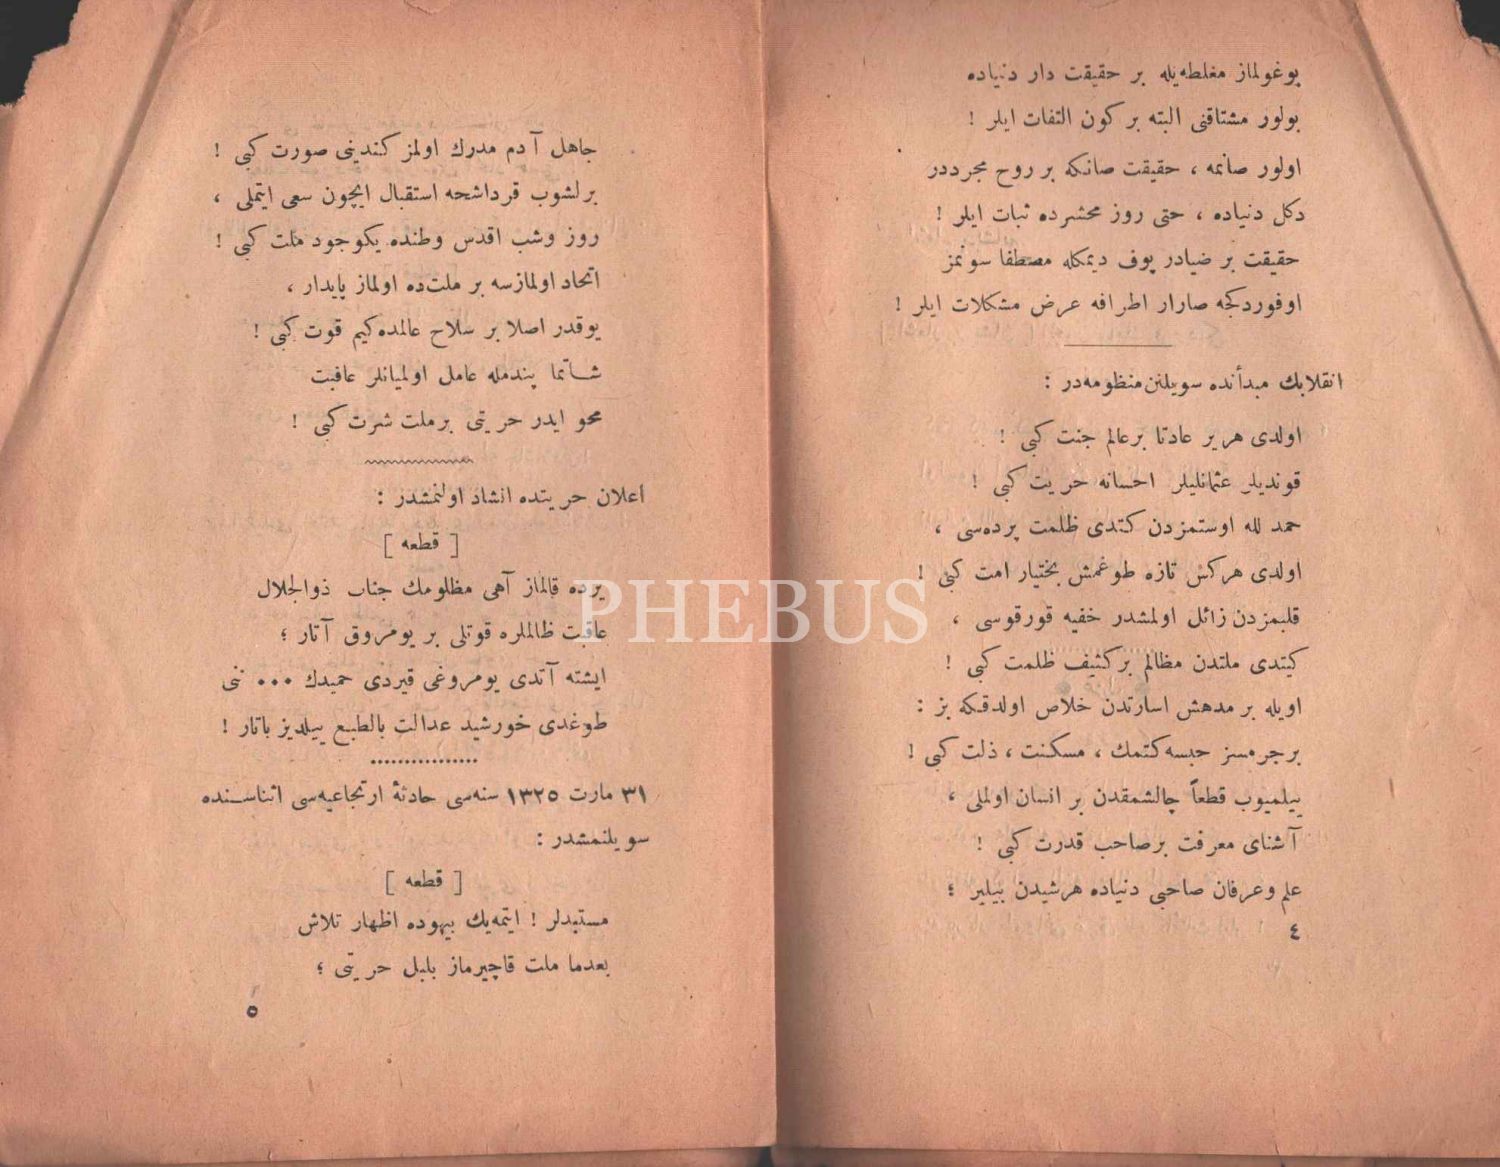 يوغولماز مغلطه‌يله بر حقيقت دار دنياده
بولور مشتاقنی البته بر كون التفات ايلر !
اولور صانمه ، حقيقت صانكه بر روح مجرددر
دكل دنياده ، حتی روز محشرده ثبات ايلر !
حقيقت بر ضيادر پوف ديمكله مصطفا سونمز
اوفوردكجه صارار اطرافه عرض مشكلات ايلر !
انقلابك مبدأنده سويلنن منظومه‌در :
اولدی هر ير عادتا بر عالم جنت كبی !
قوندیلر عثمانلیلر احسانه حريت كبی !
حمد لله اوستمزدن كتدی ظلمت پرده‌سی ،
اولدی هركس تازه طوغمش بختيار امت كبی !
قلبمزدن زائل اولمشدر خفيه قورقوسی ،
كيتدی ملتدن مظالم بر كثيف ظلمت كبی !
اويله بر مدهش اسارتدن خلاص اولدقكه بز :
بر جرمسز حبسه كتمك ، مسكنت ، ذلت كبی !
ييلميوب قطعاً چالشمقدن بر انسان اولملی ،
آشنای معرفت بر صاحب قدرت كبی !
علم وعرفان صاحبی دنياده هر شيدن بيلير ؛
٤
جاهل آدم مدرك اولمز كندينی صورت كبی !
برلشوب قرداشجه استقبال ايچون سعی ايتملی ،
روز وشب اقدس وطنده يكوجود ملت كبی !
اتحاد اولمازسه بر ملت‌ده اولماز پايدار ،
يوقدر اصلا بر سلاح عالمده كيم قوت كبی !
شاتما پندمله عامل اولميانلر عاقبت
محو ايدر حريتی بر ملت شرت كبی !
اعلان حريتده انشاد اولنمشدر :
[ قطعه ]
يرده قالماز آهی مظلومك جناب ذوالجلال
عاقبت ظالملره قوتلی بر يومروق آتار ؛
ايشته آتدی يومروغی قيردی حميدك ••• نی
طوغدی خورشيد عدالت بالطبع ييلديز باتار !
٣١ مارت ١٣٢٥ سنه‌سی حادثهٔ ارتجاعيه‌سی اثناسنده
سويلنمشدر :
[ قطعه ]
مستبدلر ! ايتمه‌يك بيهوده اظهار تلاش
بعدما ملت قاچيرماز بلبل حريتی ؛
٥
PHEBUS